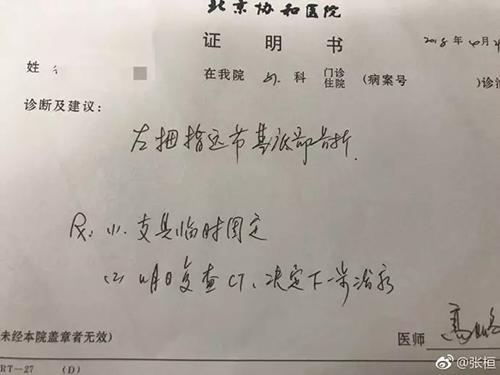 北京协和医院
证明书
2018年10月2
姓
在我院 科 门诊 住院 (病案号 )诊治
诊断及建议:
左拇指远节基底部骨折.
R: (1). 支具临时固定
(2) 明日复查CT、决定下一步治疗
未经本院盖章者无效)
医师
RT-27 (D)
@张桓